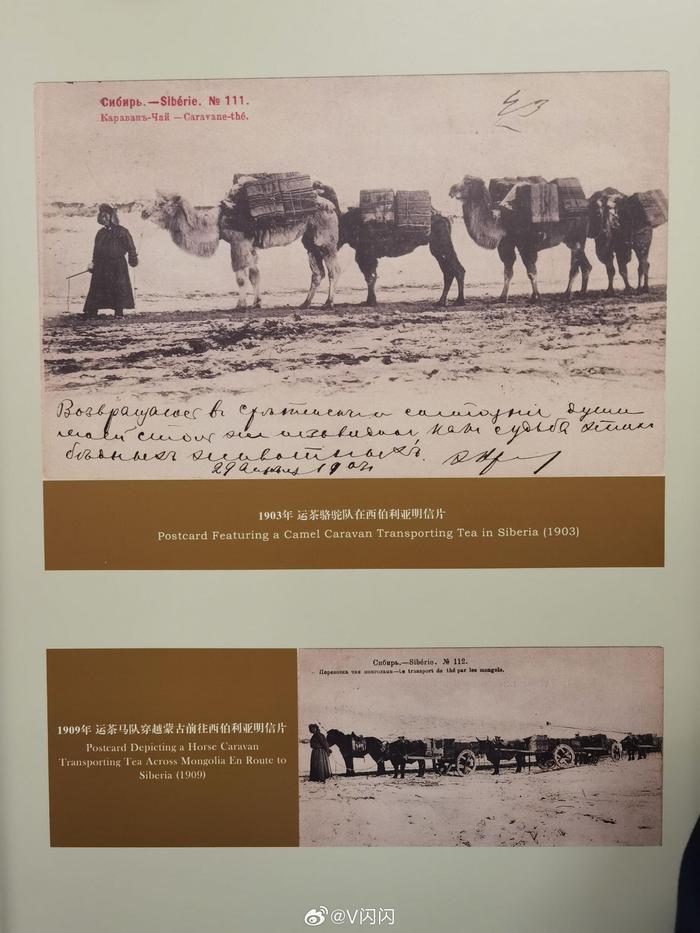 Сибирь.—Sibérie. № 111.
Караванъ-Чай — Caravane-thé.
Возвращаюсь въ
судьба этихъ
бѣдныхъ животныхъ.
1903年 运茶骆驼队在西伯利亚明信片
Postcard Featuring a Camel Caravan Transporting Tea in Siberia (1903)
Сибирь.—Sibérie. № 112.
Перевозка чая монголами—Le transport de thé par les mongols.
1909年 运茶马队穿越蒙古前往西伯利亚明信片
Postcard Depicting a Horse Caravan
Transporting Tea Across Mongolia En Route to
Siberia (1909)
@V闪闪